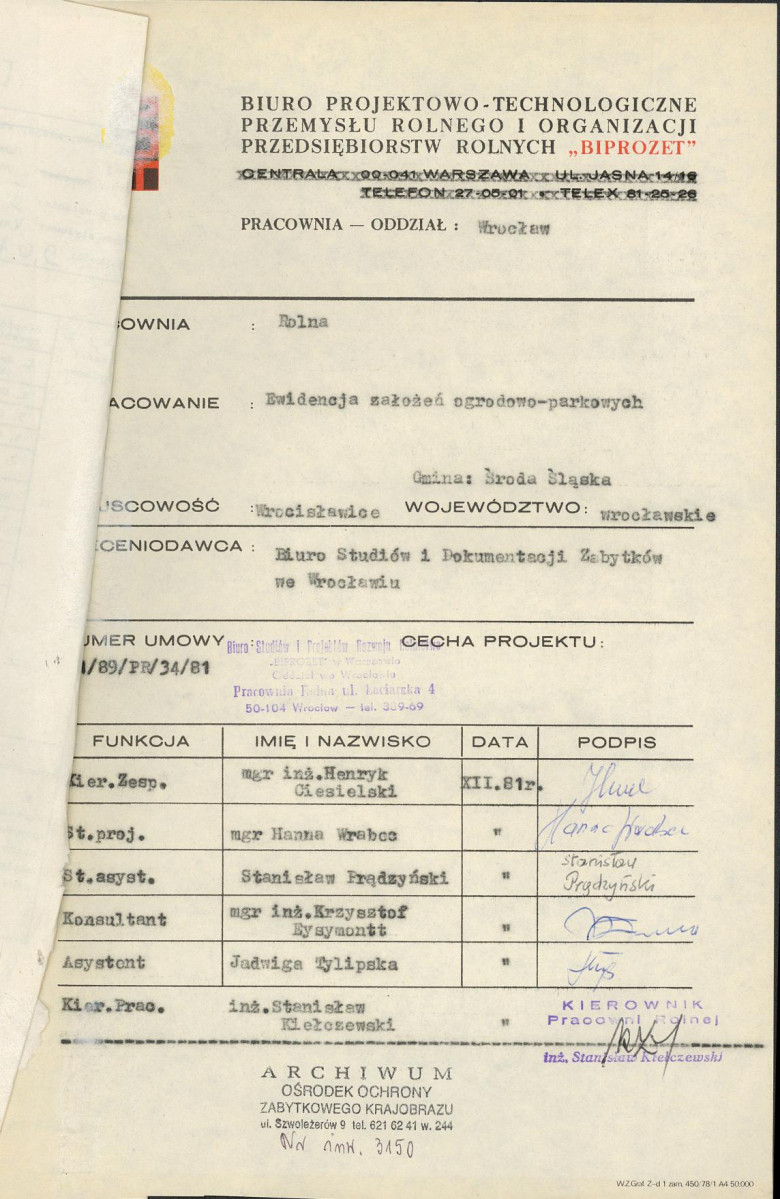 BIURO PROJEKTOWO-TECHNOLOGICZNE
PRZEMYSŁU ROLNEGO I ORGANIZACJI
PRZEDSIĘBIORSTW ROLNYCH „BIPROZET”
CENTRALA 00-041 WARSZAWA UL. JASNA 14-16
TELEFON 27-05-01 • TELEX 81-25-26
PRACOWNIA — ODDZIAŁ : Wrocław
OWNIA : Rolna
ACOWANIE : Ewidencja założeń ogrodowo-parkowych
Gmina: Środa Śląska
JSCOWOŚĆ :Wrocisławice WOJEWÓDZTWO: wrocławskie
CENIODAWCA : Biuro Studiów i Dokumentacji Zabytków
we Wrocławiu
UMER UMOWY CECHA PROJEKTU:
/89/PR/34/81
Biuro Studiów i Projektów Rozwoju
„BIPROZET” w Warszawie
Oddział we Wrocławiu
Pracownia Rolna ul. Łaciarska 4
50-104 Wrocław — tel. 389-69
FUNKCJA IMIĘ I NAZWISKO DATA PODPIS
Kier.Zesp. mgr inż.Henryk Ciesielski XII.81r.
St.proj. mgr Hanna Wrabec " Hanna Wrabec
St.asyst. Stanisław Prądzyński " Stanisław Prądzyński
Konsultant mgr inż.Krzysztof Eysymontt "
Asystent Jadwiga Tylipska "
Kier.Prac. inż.Stanisław Kiełczewski "
KIEROWNIK
Pracowni Rolnej
inż. Stanisław Kiełczewski
ARCHIWUM
OŚRODEK OCHRONY
ZABYTKOWEGO KRAJOBRAZU
ul. Szwoleżerów 9 tel. 621 62 41 w. 244
Nr inw. 3150
WZGraf. Z-d 1 zam. 450/78/1 A4 50.000